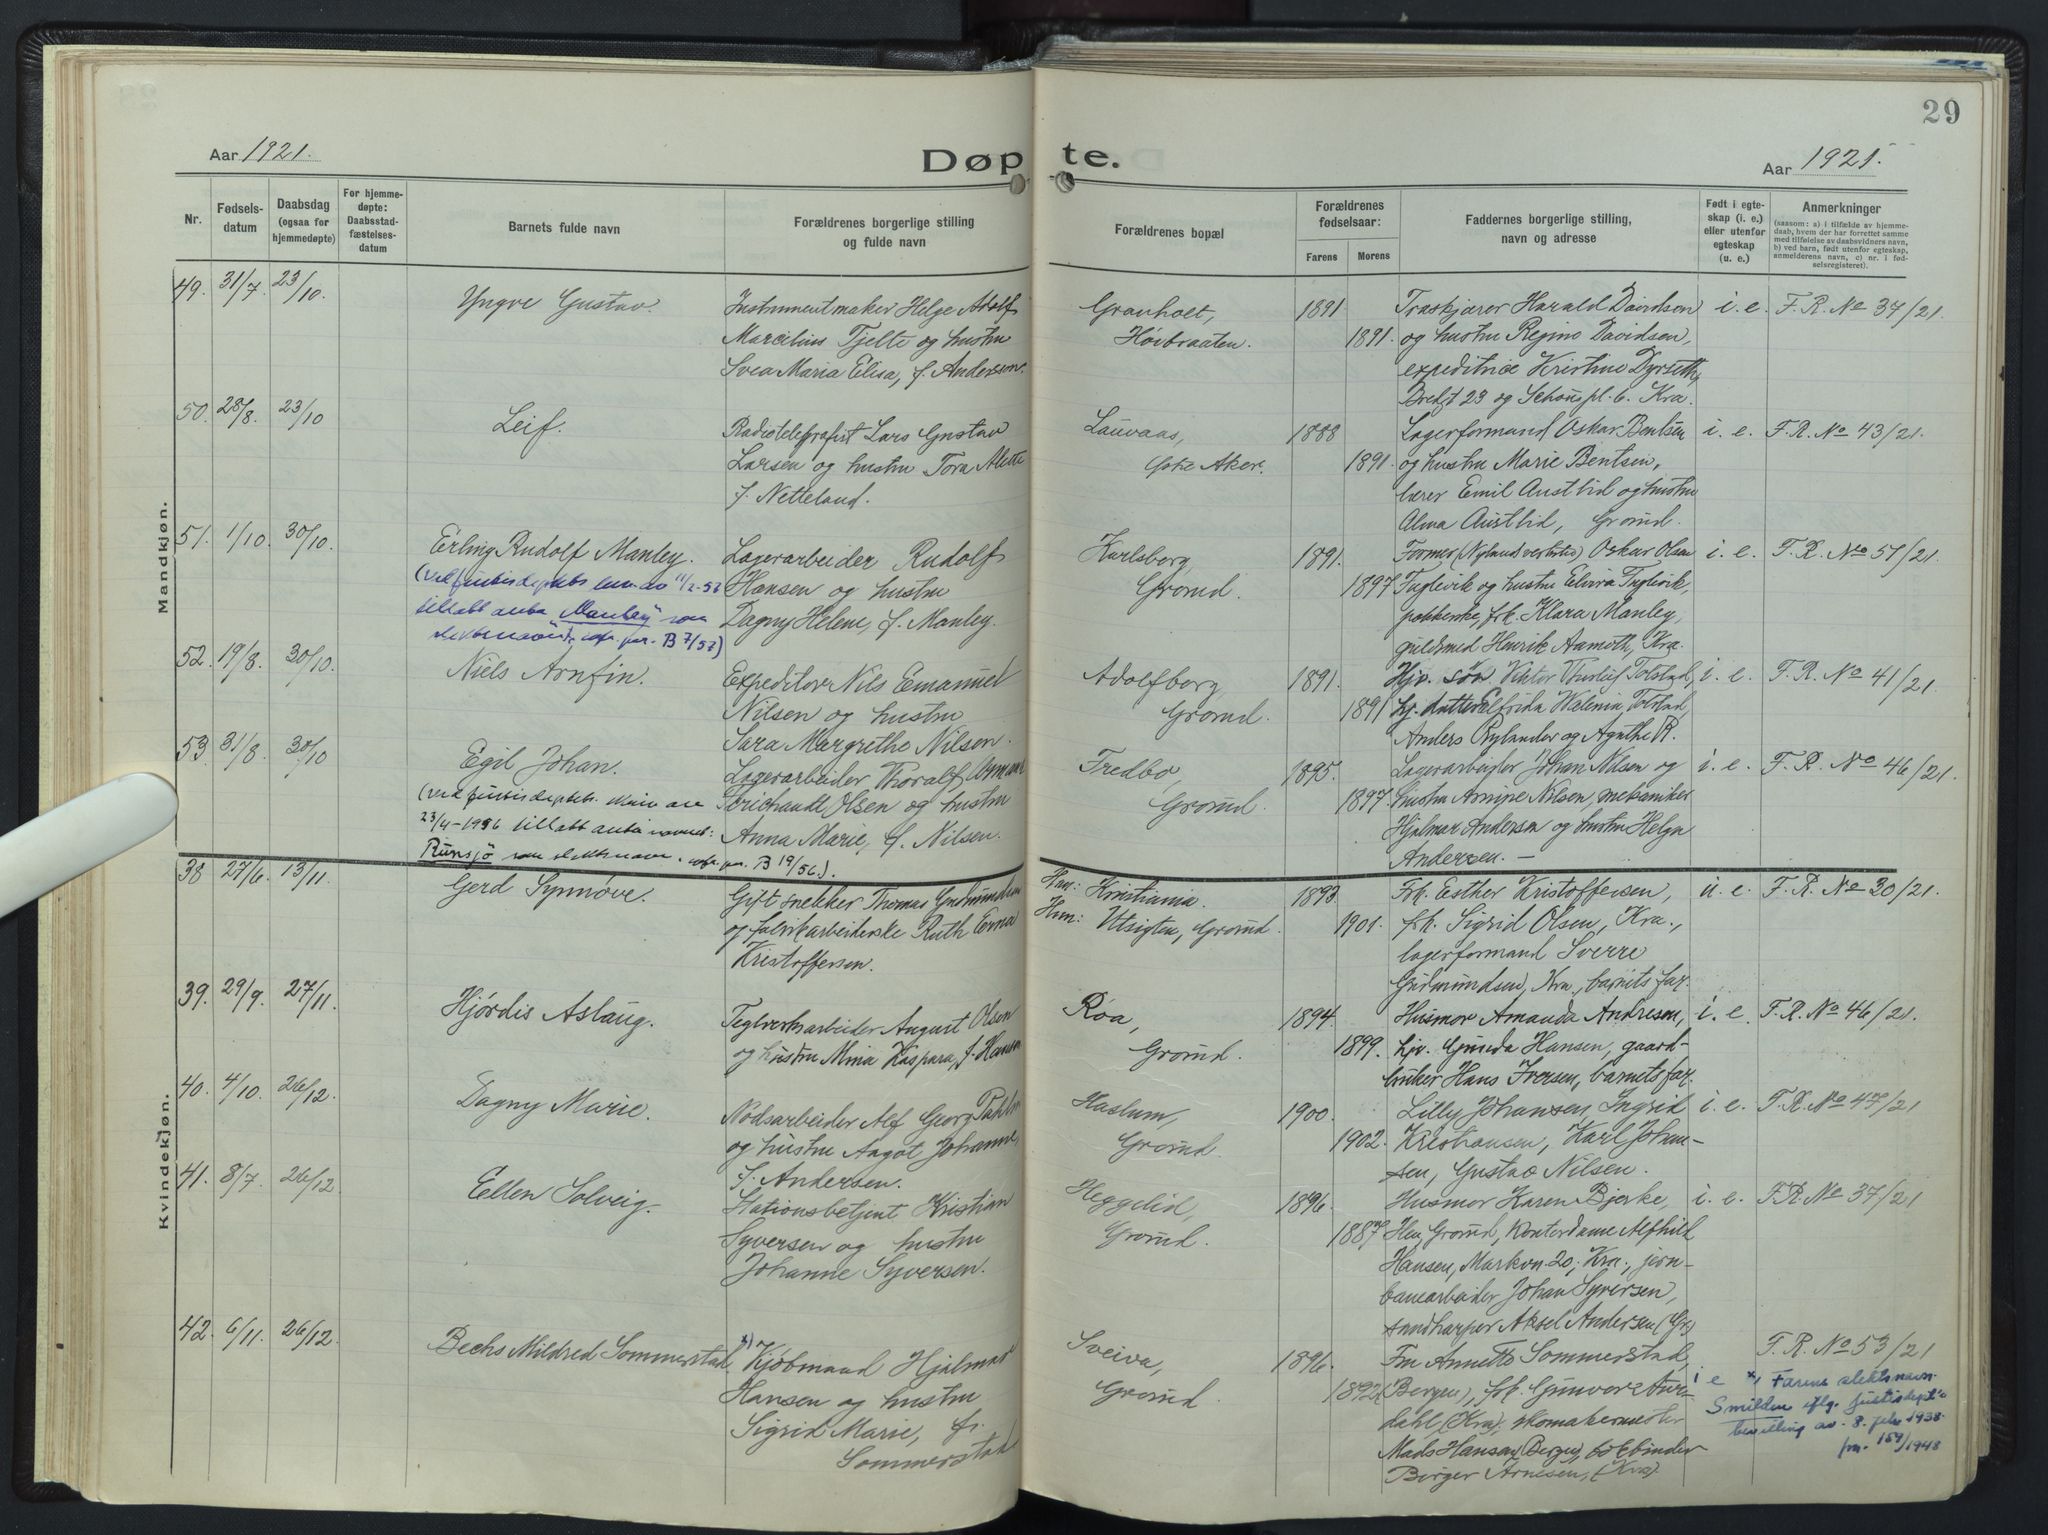 29
Aar 1921.
Døpte.
Aar 1921.
Nr.
Fødsels-
datum
Daabsdag
(ogsaa for
hjemmedøpte)
For hjemme-
døpte:
Daabsstad-
fæstelses-
datum
Barnets fulde navn
Forældrenes borgerlige stilling
og fulde navn
Forældrenes bopæl
Forældrenes
fødselsaar:
Farens
Morens
Faddernes borgerlige stilling,
navn og adresse
Født i egte-
skap (i. e.)
eller utenfor
egteskap
(u. e.)
Anmerkninger
(saasom: a) i tilfælde av hjemme-
daab, hvem der har forrettet samme
med tilføielse av daabsvidners navn,
b) ved barn, født utenfor egteskap,
anmelderens navn, c) nr. i fød-
selsregisteret).
Mandkjøn.
49. 31/7. 23/10.
Yngve Gustav.
Instrumentmaker Helge Adolf
Marcilius Tjelte og hustru
Svea Maria Elisa, f. Anderson.
Granholt,
Høibraaten.
1891
1891.
Træskjærer Harald Davidsen
og hustru Regine Davidsen,
expeditrice Kristine Dyrseth,
Bredgt 23 og Schous pl. 6. Kra.
i. e.
F. R. No 37/21.
50. 28/8. 23/10
Leif.
Radiotelegrafist Lars Gustav
Larsen og hustru Tora Alette
f. Netteland.
Lauvaas,
Østre Aker.
1888
1891.
Lagerformand Oskar Bentsen
og hustru Marie Bentsen,
lærer Emil Austlid og hustru
Alma Austlid, Grorud.
i. e.
F. R. No 43/21.
51. 1/10. 30/10.
Erling Rudolf Manley.
(Ved justisdeptets 11/2-57
tillatt anta "Manley" som
slektsnavn, cfr. pr. B 7/57)
Lagerarbeider Rudolf
Hansen og hustru
Dagny Helene, f. Manley.
Karlsborg,
Grorud.
1891.
1897
Former (Nylands verksted) Oskar Olsen
Fuglevik og hustru Elvira Fuglevik,
pakkerske, frk. Klara Manley,
guldsmed Henrik Aamoth, Kra.
i. e.
F. R. No 51/21.
52. 19/8. 30/10.
Niels Arnfin.
Expeditør Nils Emanuel
Nilsen og hustru
Sara Margrethe Nilsen.
Adolfborg,
Grorud.
1891.
1891
Hjv. søn Viktor Thorleif Tolstad,
hj. datter Elfrida Walenia Tolstad,
Anders Rylander og Agathe R.
i. e.
F. R. No 41/21.
53. 31/8. 30/10
Egil Johan.
(Ved justisdeptets skriv av
23/4-1956 tillatt anta navnet:
Runsjö som slektsnavn. cfr. pr. B 19/56.)
Lagerarbeider Thoralf Osmund
Olsen og hustru
Anna Marie, f. Nilsen.
Fredbo,
Grorud.
1895.
1897.
Lagerarbeider Johan Nilsen og
hustru Arnine Nilsen, mekaniker
Hjalmar Andersen og hustru Helga
Andersen. —
i. e.
F. R. No 46/21.
Kvindekjøn.
38 27/6. 13/11.
Gerd Synnøve.
Gift snekker Thomas Gudmundsen
og fabrikarbeiderske Ruth Erna
Kristoffersen.
Han: Kristiania.
Hun: Utsigten, Grorud.
1893.
1901.
Frk. Esther Kristoffersen,
frk. Sigrid Olsen, Kra.,
lagerformand Sverre
Gudmundsen, Kra., barnets far.
u. e.
F. R. No 30/21.
39. 29/9. 27/11.
Hjördis Aslaug.
Teglverksarbeider August Olsen
og hustru Mina Kaspara, f. Hansen
Røa,
Grorud.
1894.
1899.
Husmor Amanda Andresen,
hjv. Gunda Hansen, gaard-
bruker Hans Iversen, barnets far.
i. e.
F. R. No 46/21.
40. 4/10. 26/12.
Dagny Marie.
Nødsarbeider Alf Georg Dahlin
og hustru Aagot Johanne,
f. Andersen.
Haslum,
Grorud.
1900.
1902.
Lilly Johansen, Ingrid
Kristiansen, Karl Johan-
sen, Gustav Nilsen.
i. e.
F. R. No 47/21
41. 8/7. 26/12
Ellen Solveig.
Stationsbetjent Kristian
Syversen og hustru
Johanne Syversen.
Heggelid,
Grorud.
1896.
1887
Husmor Karen Bjerke,
Grorud, kontordame Alfhild
Hansen, Markvn. 20, Kra., jern-
banearbeider Johan Syversen,
sandharper Aksel Andersen (Gr.)
i. e.
F. R. No 37/21
42. 6/11. 26/12.
Bechs Mildred Sommerstad.
x) Kjøbmand Hjalmar
Hansen og hustru
Sigrid Marie, f.
Sommerstad
Sveiva,
Grorud.
1896.
1892
Fru Annette Sommerstad,
(Bergen), frk. Gunvor Aur-
dahl (Kra), skomakermester
Mads Hansen (Bergen), bokbinder
Birger Arnesen, (Kra).
i e
F. R. No 53/21
x) Farens slektsnavn
Smilden iflg. justisdept's
bevilling av 8. febr 1938.
pr. 159/1948